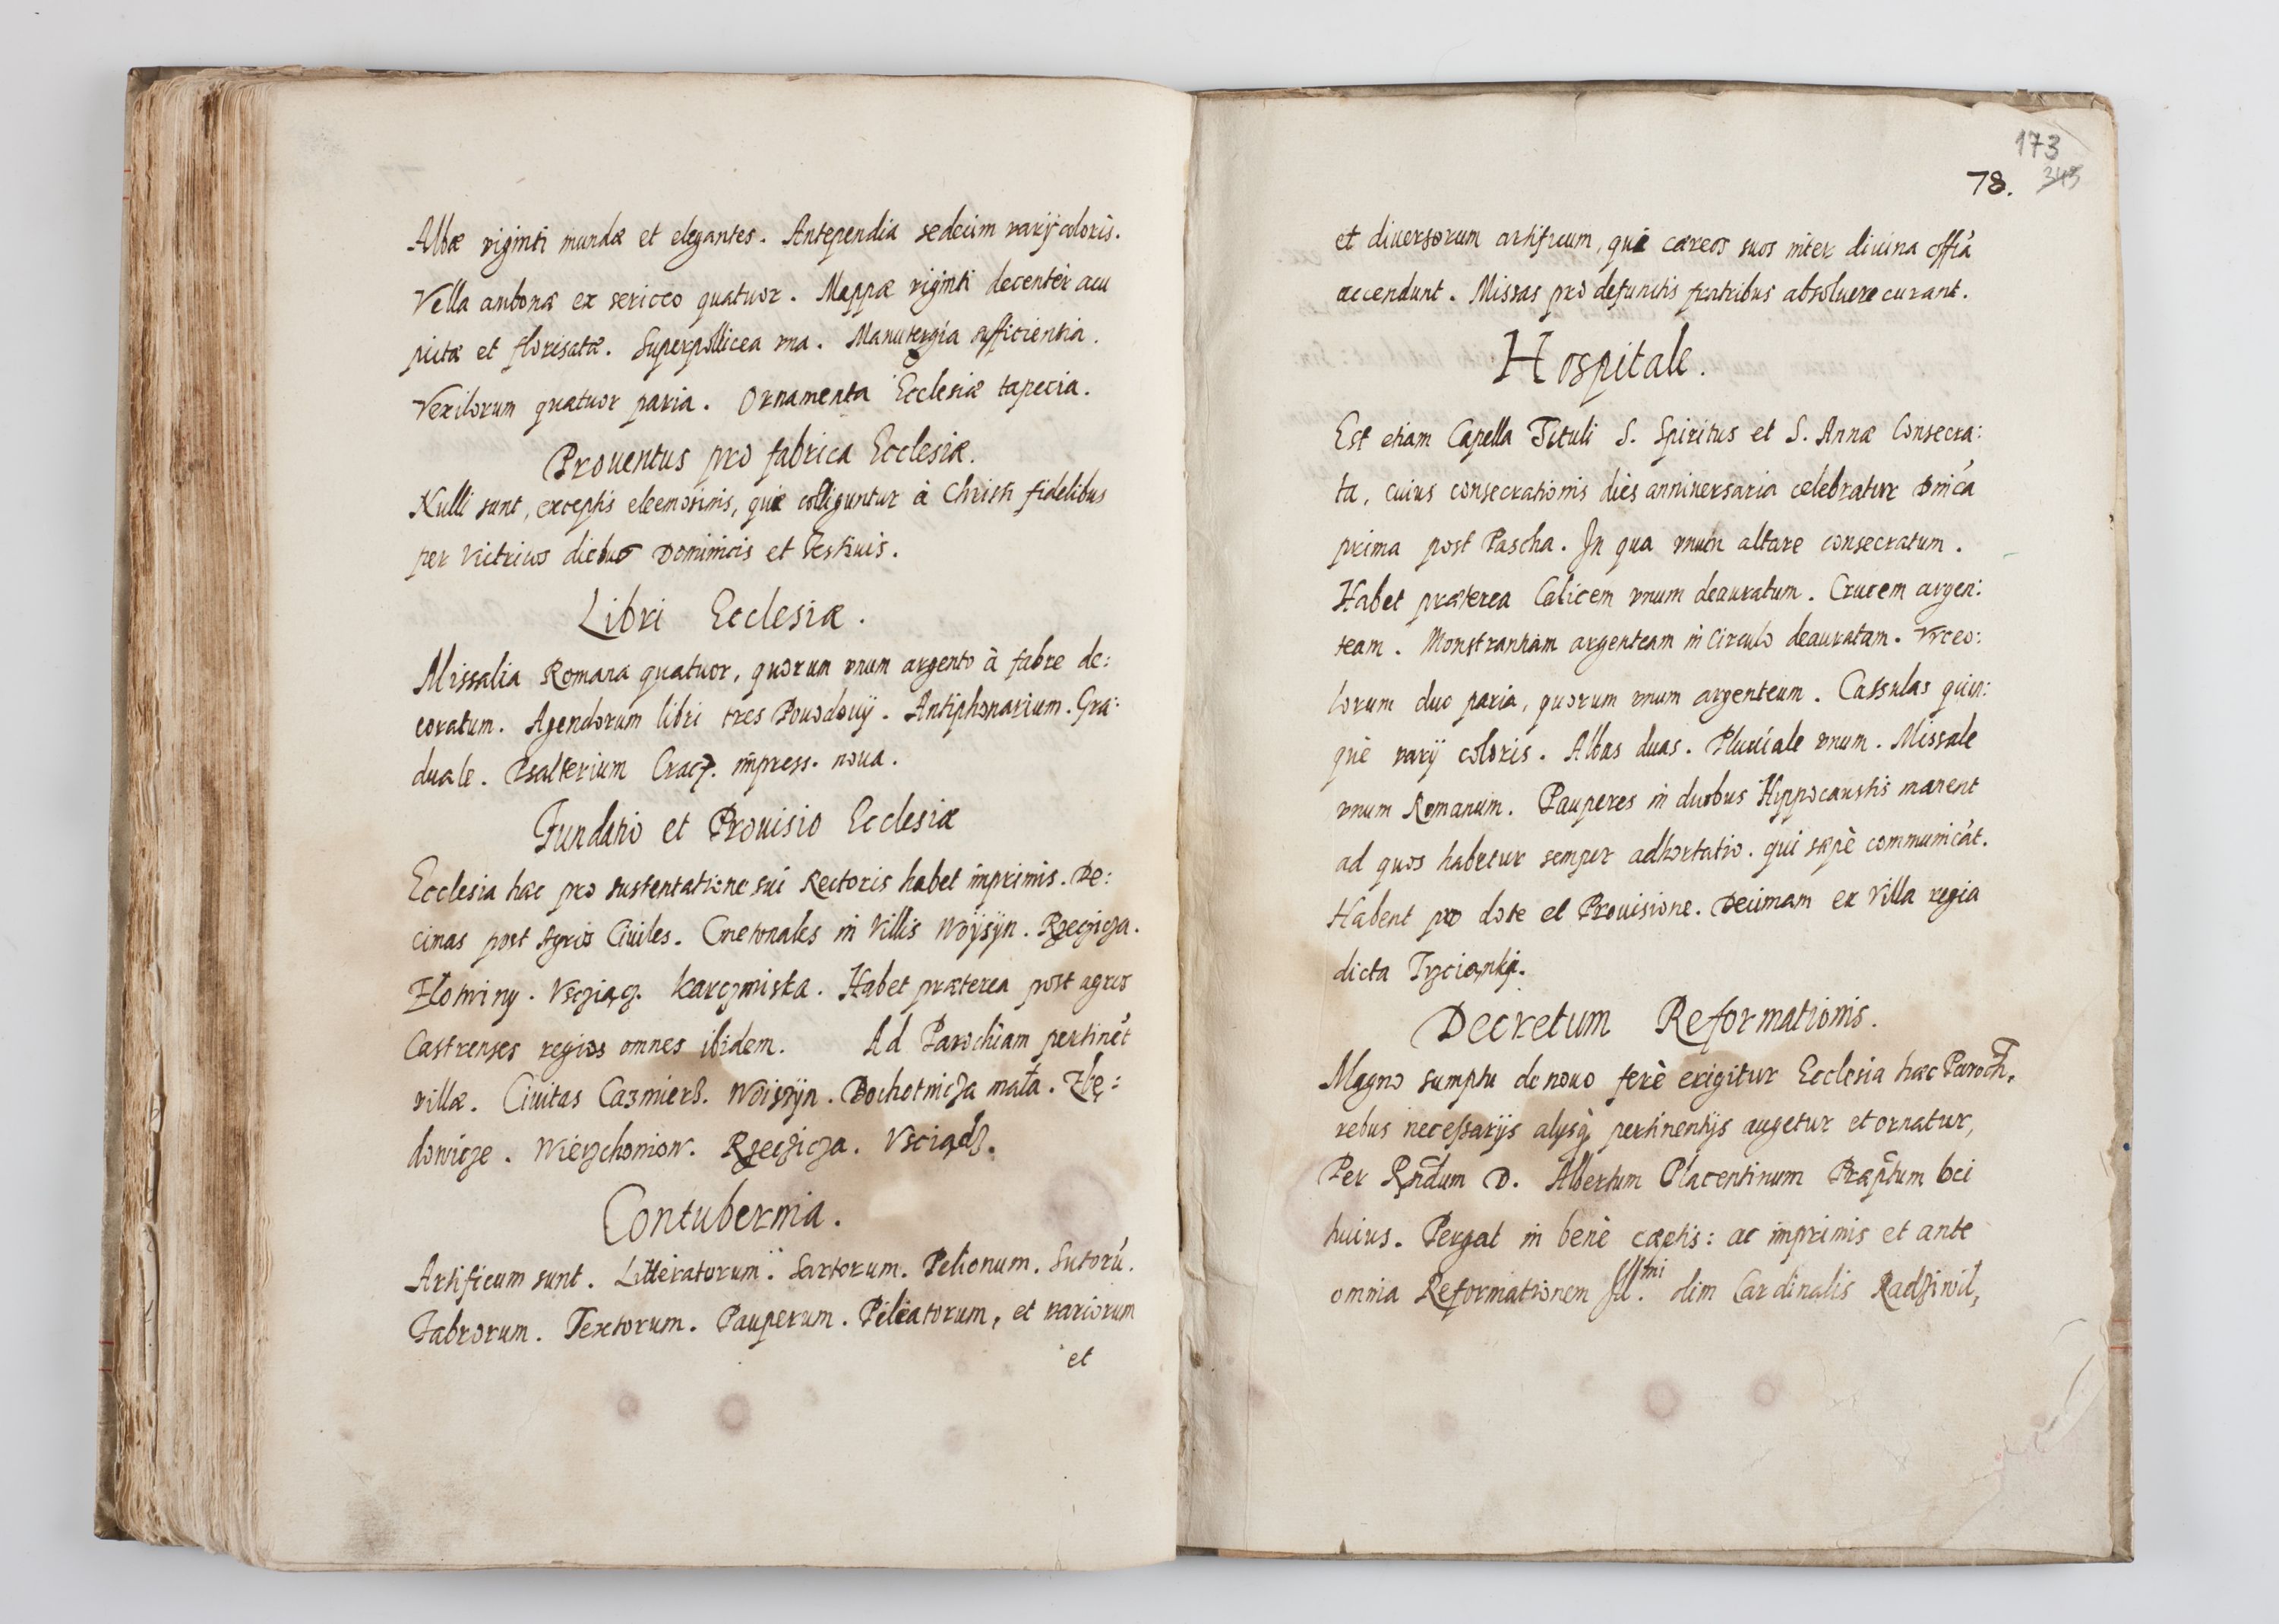 Albæ viginti mundæ et elegantes. Antependia sedecim varij coloris.
Vella ambonæ ex sericeo quatuor. Mappæ viginti decentèr acu
pictæ et florisatæ. Superpollicea vna. Manutergia sufficientia.
Vexilorum quatuor paria. Ornamenta Ecclesiæ tapecia.
Prouentus pro fabrica Ecclesiæ.
Nulli sunt, exceptis eleemosinis, quæ colliguntur à Christi fidelibus
per Victricos diebus Dominicis et Festiuis.
Libri Ecclesiæ.
Missalia Romana quatuor, quorum vnum argento à fabre de:
coratum. Agendorum libri tres Powodowij. Antiphonarium. Gra:
duale. Psalterium impress. noua.
Fundatio et Prouisio Ecclesiæ
Ecclesia hæc pro sustentatione sui Rectoris habet imprimis. De:
cimas post Agros Ciuiles. Cmetonales in Villis Woysÿn. Rzeczicza.
Zlotwiny. Vscziącz. Karczmiska. Habet præterea post agros
Castrenses regios omnes ibidem. Ad Parochiam pertinēt
villæ. Ciuitas Cazmierz. Woiszÿn. Bochotnicza mała. Zbę:
dowicze. Wierzchoniow. Rzeczicza. Vsciądz.
Contubernia.
Artificum sunt. Litteratorum. Sartorum. Pelionum. Sutorū.
Fabrorum. Textorum. Pauperum. Pileatorum, et variorum
et
173
78. 345
et diuersorum artificum, qui cæreos suos inter diuina offia
accendunt. Missas pro defunctis fratribus absoluere curant.
Hospitale.
Est etiam Capella Tituli S. Spiritus et S. Annæ Consecra:
ta, cuius consecrationis dies anniuersaria celebratur Dnica
prima post Pascha. In qua vnum altare consecratum.
Habet præterea Calicem vnum deauratum. Crucem argen:
team. Monstrantiam argenteam in Circulo deauratam. Vrceo:
lorum duo paria, quorum vnum argenteum. Cassulas quin:
què varij coloris. Albas duas. Pluuiale vnum. Missale
vnum Romanum. Pauperes in duobus Hippocaustis manent
ad quos habetur semper adhortatio. qui sæpè communicāt.
Habent pro dote et Prouisione. Decimam ex Villa regia
dicta Trzcianki.
Decretum Reformationis.
Magno sumptu de nouo ferè erigitur Ecclesia hæc Paroch,
rebus necessarijs alijsq; pertinentijs augetur et ornatur,
Per Rndum D. Albertum Placentinum Præptum loci
huius. Pergat in benè cæptis: ac imprimis et ante
omnia Reformationem Ill.mi olim Cardinalis Radziwil,